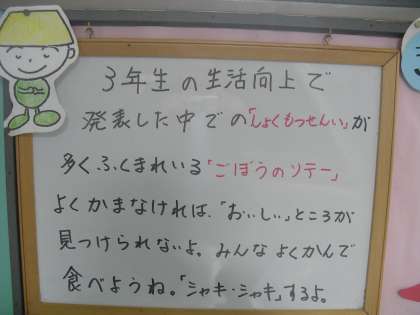 3年生の生活向上で
発表した中での「しょくもつせんい」が
多くふくまれいる「ごぼうのソテー」
よくかまなければ、「おいしい」ところが
見つけられないよ。みんなよくかんで
食べようね。「シャキ・シャキ」するよ。